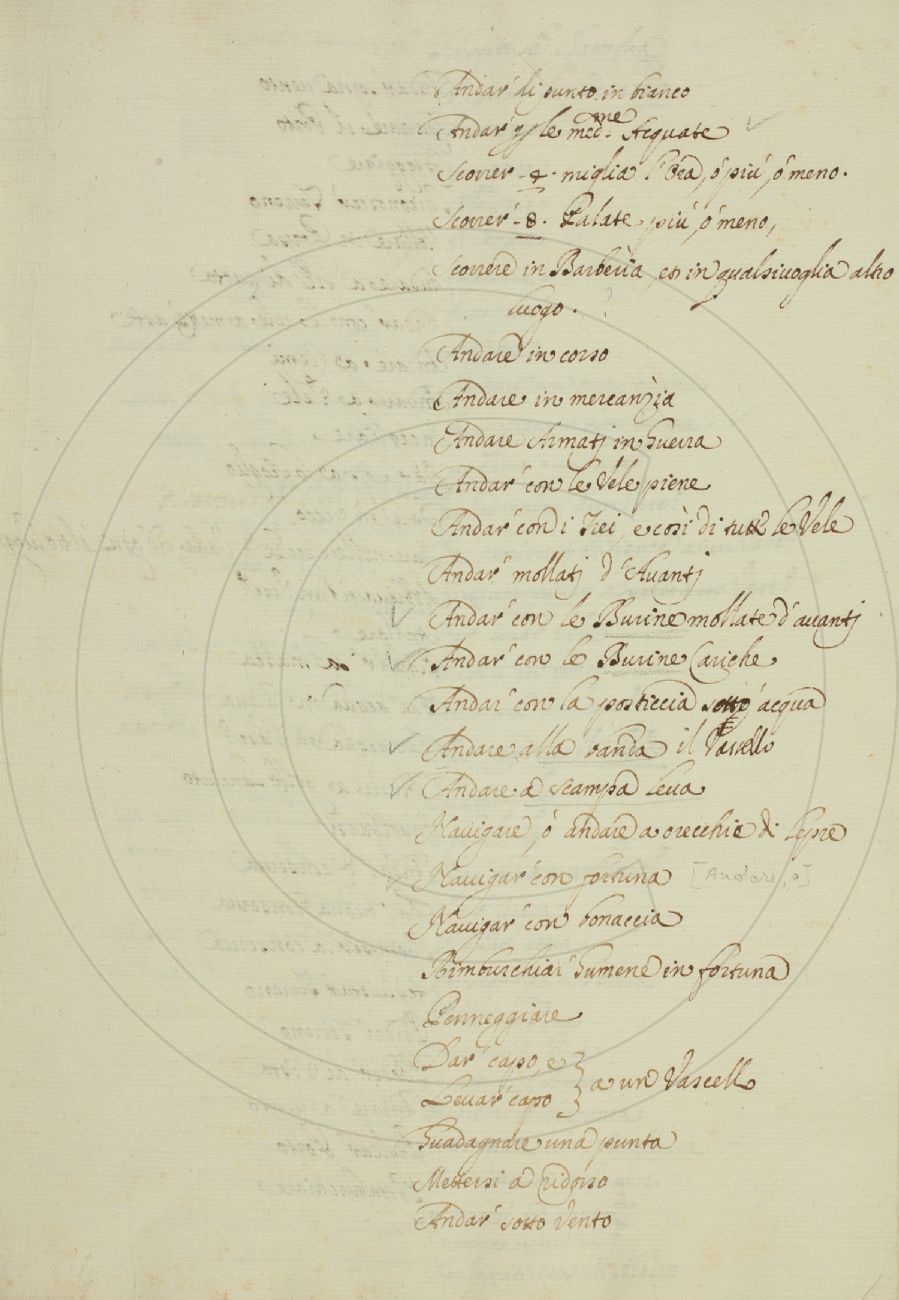 Andar' di punto in bianco
Andar' p le med.me Acquate
Scorrer - 4 - miglia l'Ora, ó più, ó meno.
Scorrer' - 8. Palate più, ó meno,
Scorrere in Barberia, et in qualsivoglia altro
luogo.
Andare in corso
Andare in mercanzia
Andare Armatj in Guerra
Andar' con le Vele piene
Andar' con i Trei, e così di tutte le Vele
Andar' mollatj d'Avantj
Andar' con le Burine mollate d'avantj
Andar' con le Burine Cariche
Andar' con la posticcia sotto acqua
Andare alla banda il Vascello
Andare a scampa leva
Navigare, ó andare a orecchie di lepre
Navigar' con fortuna [Andare, o]
Navigar' con bonaccia
Rimburchiar' Gumene in fortuna
Penneggiare
Dar' capo, e
Levar' capo } a un Vascello
Guadagnare una punta
Mettersi a ridosso
Andar' sotto Vento